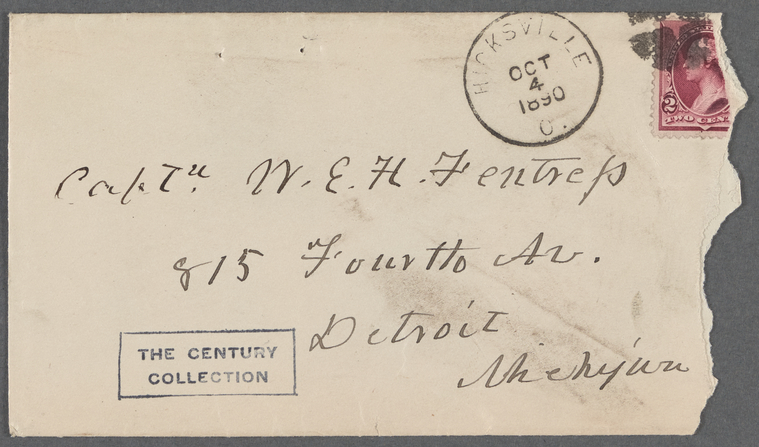 HICKSVILLE
OCT
4
1890
O.
2
TWO CEN
Captn W. E. H. Fentress
815 Fourth Av.
Detroit
Michigan
THE CENTURY
COLLECTION